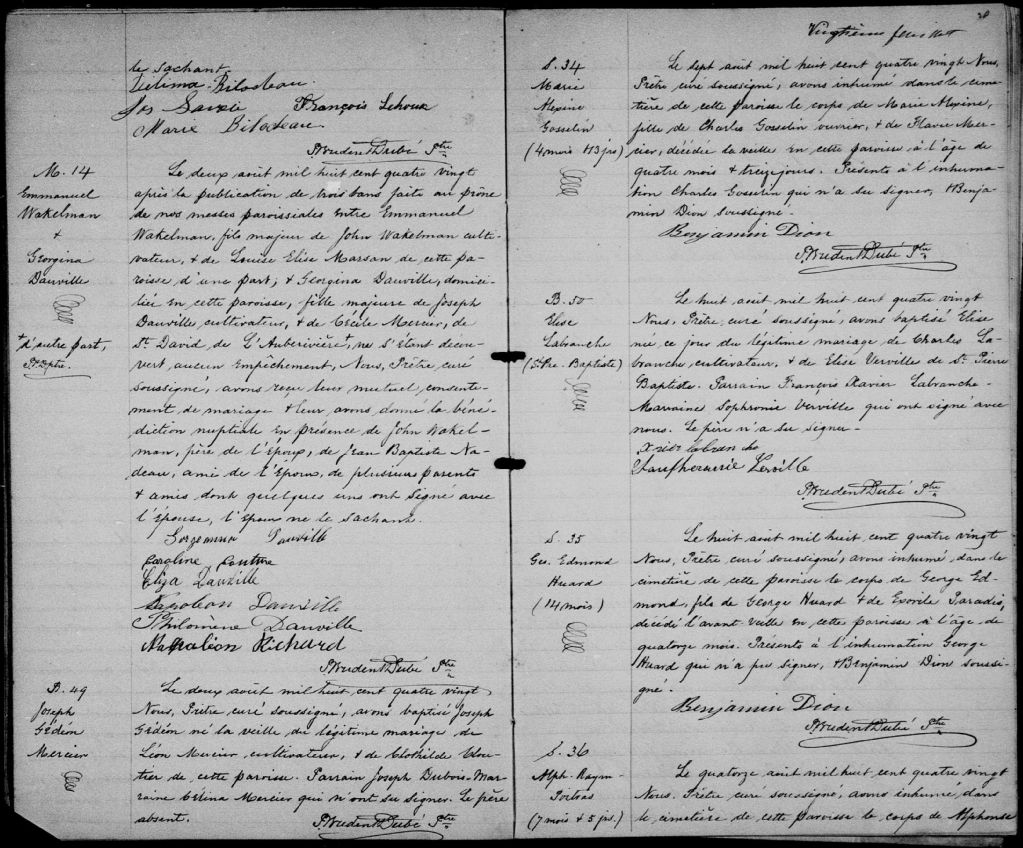 le sachant.
Vitima Bilodeau.
Jos Savoie François Lehoux
Marie Bilodeau.
Prudent Dubé Ptre
M. 14
Emmanuel
Wakelman
+
Georgina
Dauville
+ d'autre part,
Pt. D. ptre.
Le deux août mil huit cent quatre vingt
après la publication de trois bans faite au prône
de nos messes paroissiales entre Emmanuel
Wakelman, fils majeur de John Wakelman culti-
vateur, & de Louise Elise Marsan de cette pa-
roisse d'une part; & Georgina Dauville, domici-
liée en cette paroisse, fille majeure de Joseph
Dauville, cultivateur, & de Cécile Mercier, de
St David de L'Auberivière + ne s'étant décou-
vert aucun empêchement, Nous, Prêtre curé
soussigné, avons reçu leur mutuel consente-
ment de mariage & leur avons donné la béné-
diction nuptiale en présence de John Wakel-
man, père de l'époux, de Jean Baptiste Na-
deau, ami de l'époux, de plusieurs parents
& amis dont quelques uns ont signé avec
l'épouse, l'époux ne le sachant.
Dauville
Caroline Couture
Eliza Dauville
Napoléon Dauville
Philomène Dauville
Napoléon Richard
Prudent Dubé Ptre
B. 49
Joseph
Gédéon
Mercier
Le deux août mil huit cent quatre vingt
Nous, Prêtre curé soussigné, avons baptisé Joseph
Gédéon né la veille du légitime mariage de
Léon Mercier, cultivateur, & de Clothilde Clou-
tier de cette paroisse. Parrain Joseph Dubois. Mar-
raine Célina Mercier qui n'ont su signer. Le père
absent.
Prudent Dubé Ptre
20
Vingtième feuillet
S. 34
Marie
Alexine
Gosselin
(4 mois 13 jrs)
Le sept août mil huit cent quatre vingt Nous,
Prêtre curé soussigné, avons inhumé dans le cime-
tière de cette paroisse le corps de Marie Alexine,
fille de Charles Gosselin ouvrier, & de Flavie Mer-
cier, décédée la veille en cette paroisse à l'âge de
quatre mois & treize jours. Présents à l'inhuma-
tion Charles Gosselin qui n'a su signer, & Benja-
min Dion soussigné.
Benjamin Dion
Prudent Dubé Ptre
B. 50
Elise
Labranche
(St Pre. Baptiste)
Le huit août mil huit cent quatre vingt
Nous, Prêtre curé soussigné, avons baptisé Elise
née ce jour du légitime mariage de Charles La-
branche, cultivateur, & de Elise Verville de St. Pierre
Baptiste. Parrain François Xavier Labranche.
Marraine Sophronie Verville qui ont signé avec
nous. Le père n'a su signer.
Labranche
Verville
Prudent Dubé Ptre
S. 35
Geo. Edmond
Huard
(14 mois)
Le huit août mil huit cent quatre vingt
Nous, Prêtre curé soussigné, avons inhumé dans le
cimetière de cette paroisse le corps de George Ed-
mond, fils de George Huard & de Exorile Paradis,
décédé l'avant veille en cette paroisse à l'âge de
quatorze mois. Présents à l'inhumation George
Huard qui n'a pu signer, & Benjamin Dion soussi-
gné.
Benjamin Dion
Prudent Dubé Ptre
S. 36
Alph. Raym.
Poitras
(7 mois & 5 jrs.)
Le quatorze août mil huit cent quatre vingt
Nous, Prêtre curé soussigné, avons inhumé dans
le cimetière de cette paroisse le corps de Alphonse